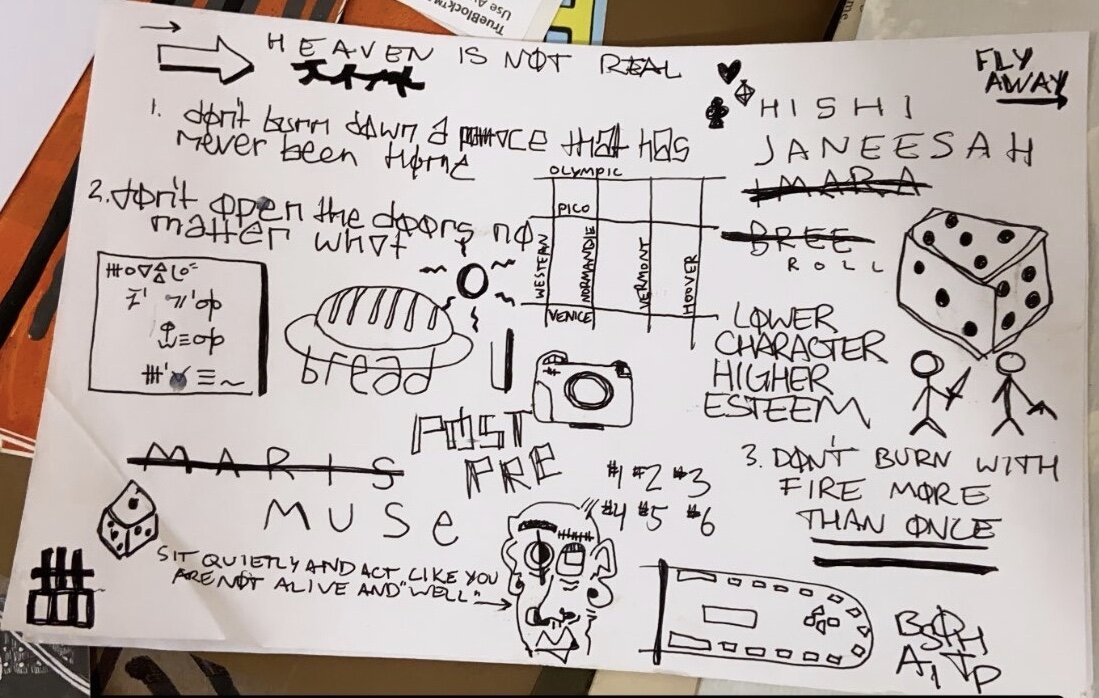 TrueBlock™
Use A
HEAVEN IS NOT REAL
FLY
AWAY
1. don't burn down a that has
never been home
HISHI
JANEESAH
IMARA
BREE
ROLL
2. don't open the doors no
matter what
OLYMPIC
PICO
WESTERN
NORMANDIE
VERMONT
HOOVER
VENICE
bread
LOWER
CHARACTER
HIGHER
ESTEEM
POST
PRE
MARIS
MUSe
#1 #2 #3
#4 #5 #6
3. DON'T BURN WITH
FIRE MORE
THAN ONCE
SIT QUIETLY AND ACT LIKE YOU
ARE NOT ALIVE AND "WELL"